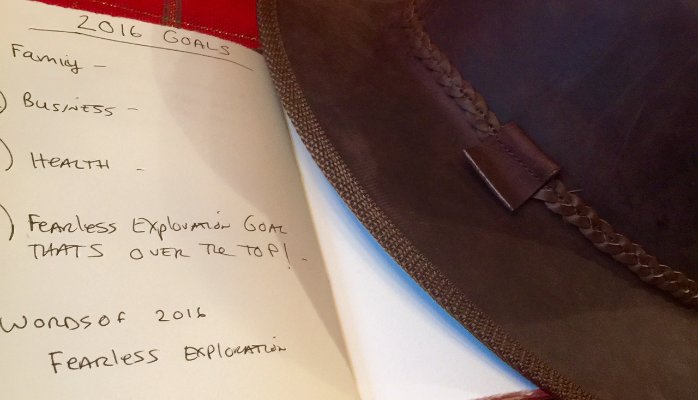 2016 GOALS
Family -
) BUSINESS -
) HEALTH -
) FEARless EXPLORATION GOAL
THATS OVER THE TOP! -
WORDS OF 2016
FEARless EXPLORATION